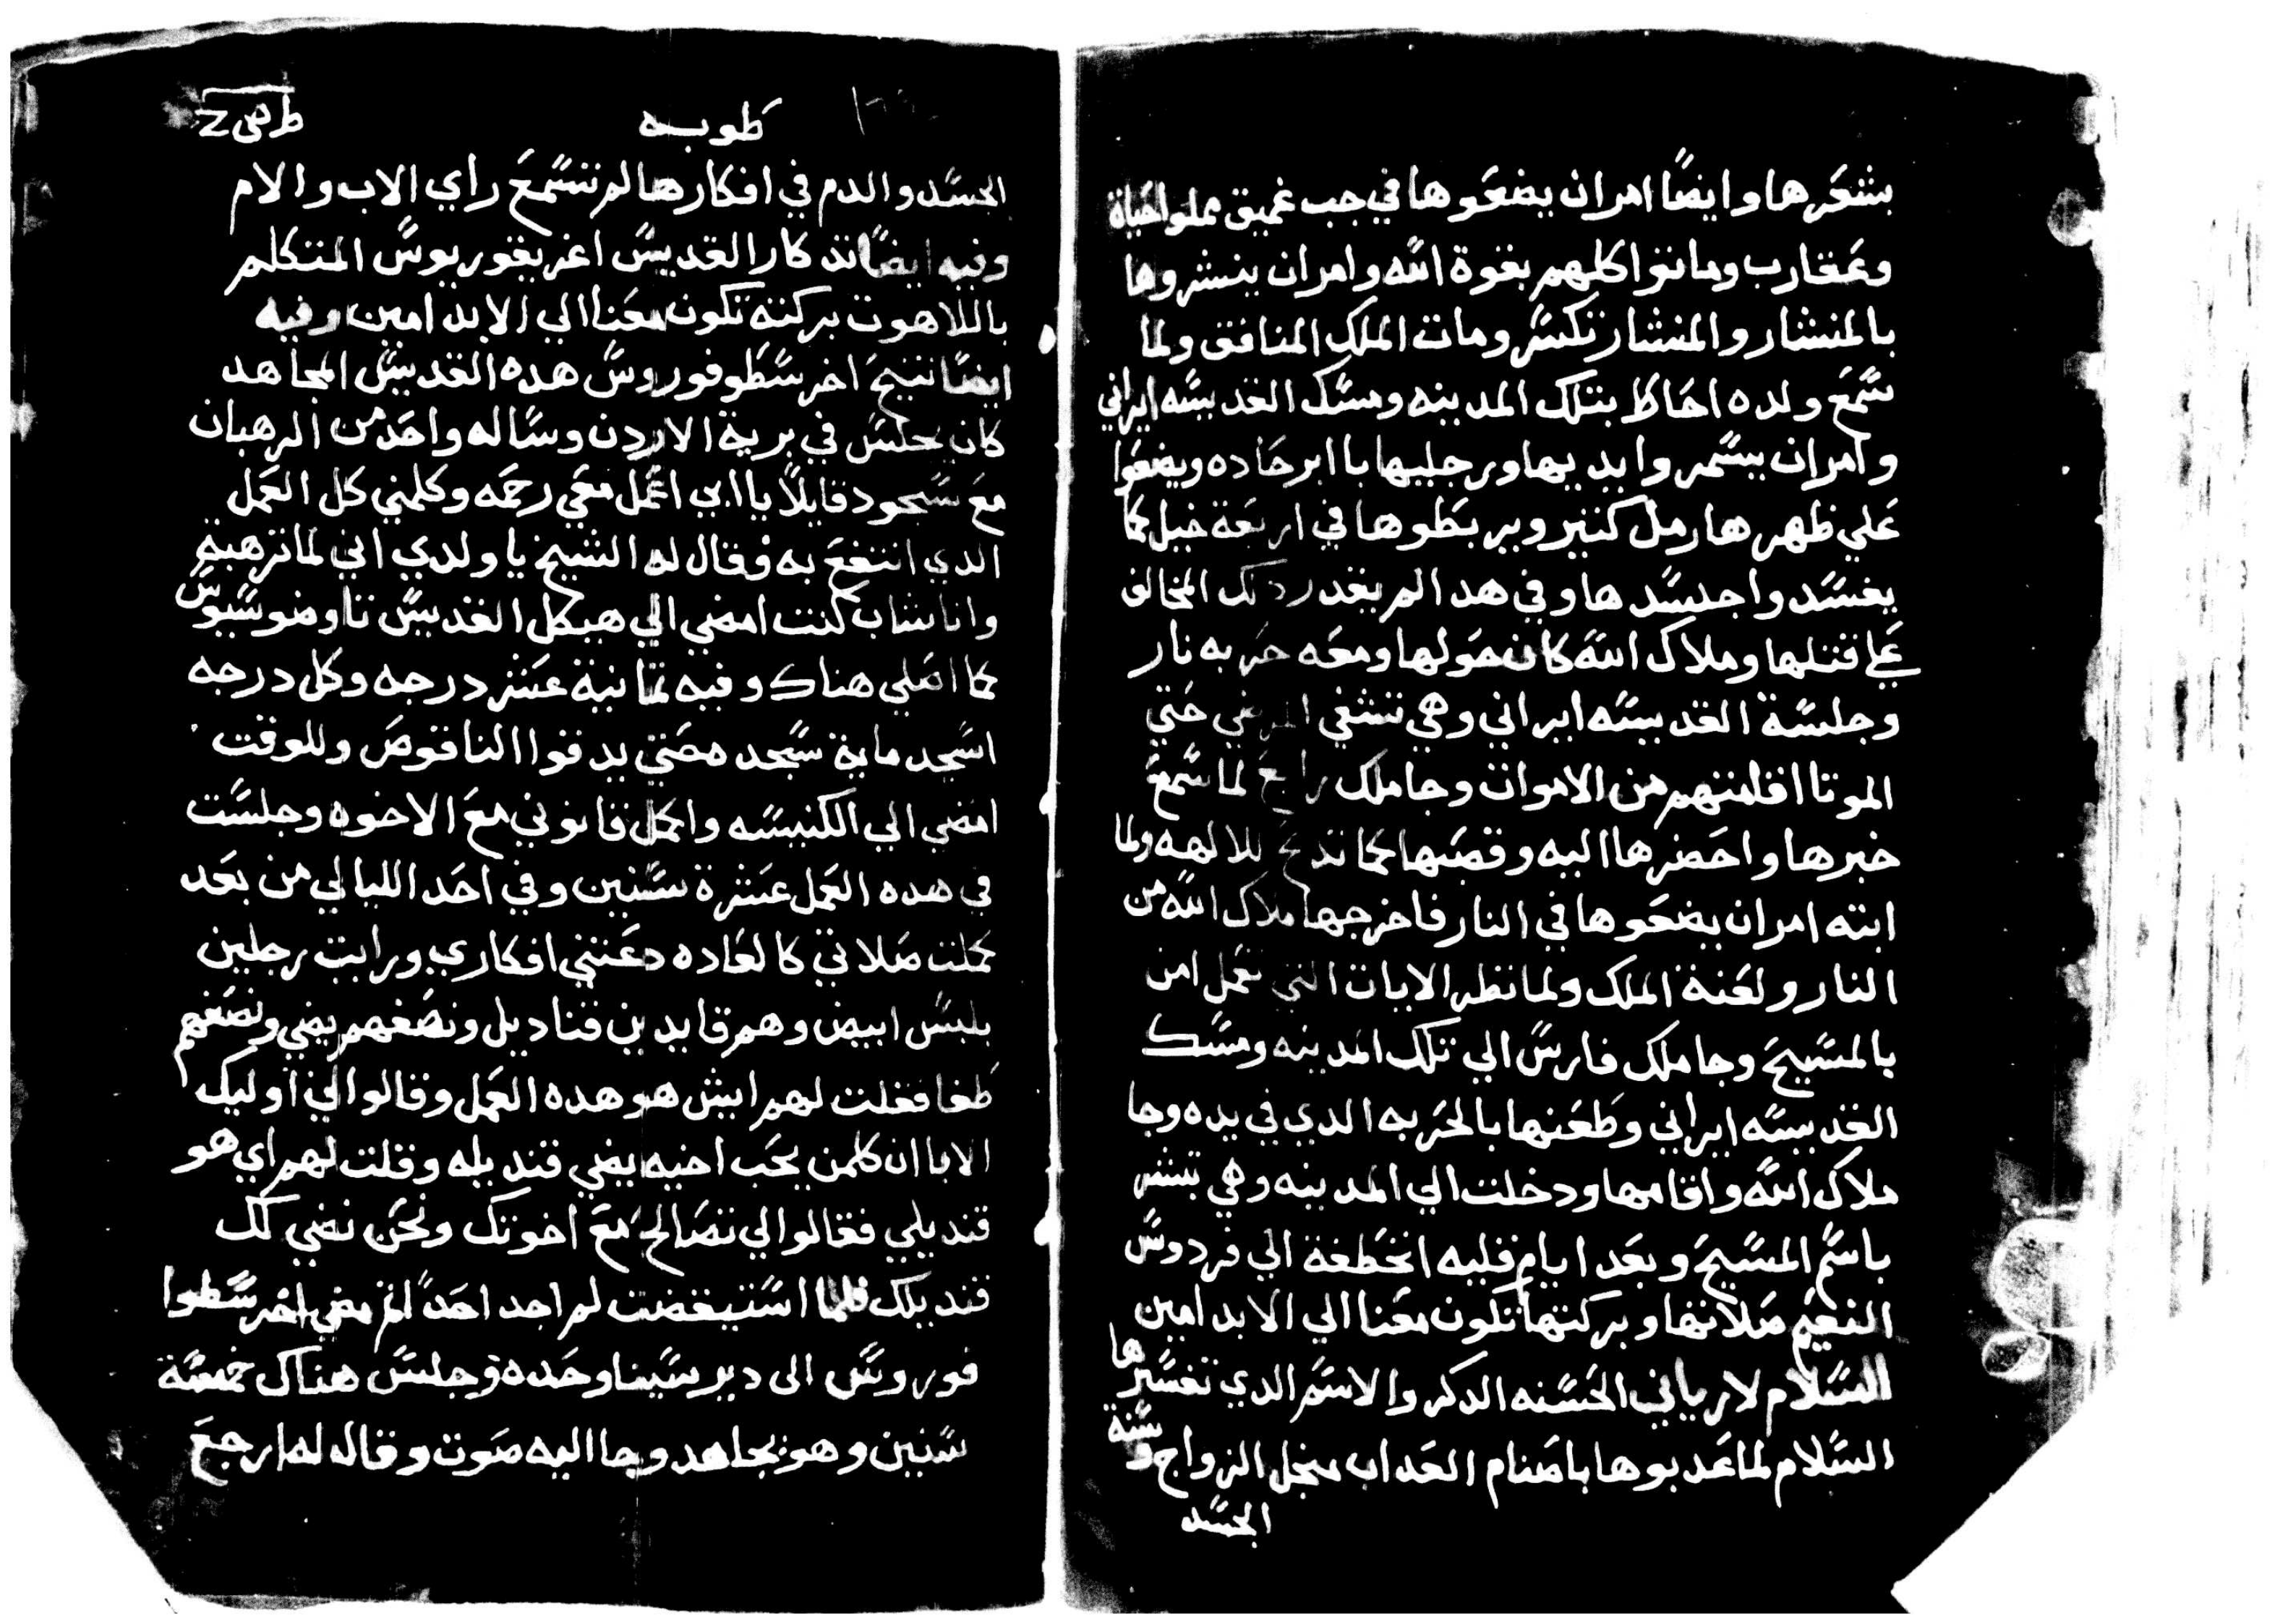 بشعرها وايضًا امر ان يضعوها في جب غميق مملوا حياة
وعقارب وماتوا كلهم بقوة الله وامر ان ينشروها
بالمنشار والمنشار تكسر ومات الملك المنافق ولما
سمع ولده احاط بتلك المدينه ومسك القديسه ايراني
وامر ان يسمروا يديها ورجليها باابر حاده ويضعوا
علي ظهرها رمل كتير ويربطوها في اربعة خيل كما
يفسدوا جسدها وفي هدا لم يقدر دلك المخالف
علي قتلها وملاك الله كان حولها ومعه حربه نار
وجلسة القديسه ايراني وهي تشفي المرضي حتي
الموتا اقامتهم من الاموات وجا ملك رابع لما سمع
خبرها واحضرها اليه وقصبها كما تدبح للالهه ولما
ابته امر ان يضعوها في النار فاخرجها ملاك الله من
النار ولعنة الملك ولما نظر الايات التي تعمل امن
بالمسيح وجا ملك فارس الي تلك المدينه ومسك
القديسه ايراني وطعنها بالحربه الدي في يده وجا
ملاك الله واقامها ودخلت الي المدينه وهي تبشر
باسم المسيح وبعد ايام قليه انخطفة الي فردوس
النعيم صلاتها وبركتها تكون معنا الي الابد امين
السلام لارياني الحسنه الدكر والاسم الدي تفسيرها
السلام لما عدبوها باصنام العداب منجل الزواج وسنة
الجسد
طوبه
الجسد والدم في افكارها لم تسمع راي الاب والام
وفيه ايضًا تدكار القديس اغريغوريوس المتكلم
باللاهوت بركته تكون معنا الي الابد امين وفيه
ايضًا تنيح اخرسطوفوروس هده القديس المجاهد
كان جلس في برية الاردن وساله واحد من الرهبان
مع سجود قايلاً يا ابي اعمل معي رحمه وكلمني كل العمل
الدي انتفع به وقال له الشيخ يا ولدي اني لما ترهبة
وانا شاب كنت امضي الي هيكل القديس تاوضوسيوس
كما اصلي هناك وفيه تمانية عشر درجه وكل درجه
اسجد ماية سجده حتي يدقوا الناقوص وللوقت
امضي الي الكنيسه واكمل قانوني مع الاخوه وجلست
في هده العمل عشرة سنين وفي احد الليالي من بعد
كملت صلاتي كالعاده دعتني افكاري ورايت رجلين
بلبس ابيض وهم قايدين قناديل ونصفهم يضي ونصفهم
طفا فقلت لهم ايش هو هده العمل وقالوا لي اوليك
الابا ان كلمن يحب اخيه يضي قنديله وقلت لهم اي هو
قنديلي فقالوا لي تصالح مع اخوتك ونحن نضي لك
قنديلك فلما استيقضت لم اجد احدًا تم مضي اخرسطوا
فوروس الى دير سينا وحده وجلس هناك خمسة
سنين وهو يجاهد وجا اليه صوت وقال له ارجع